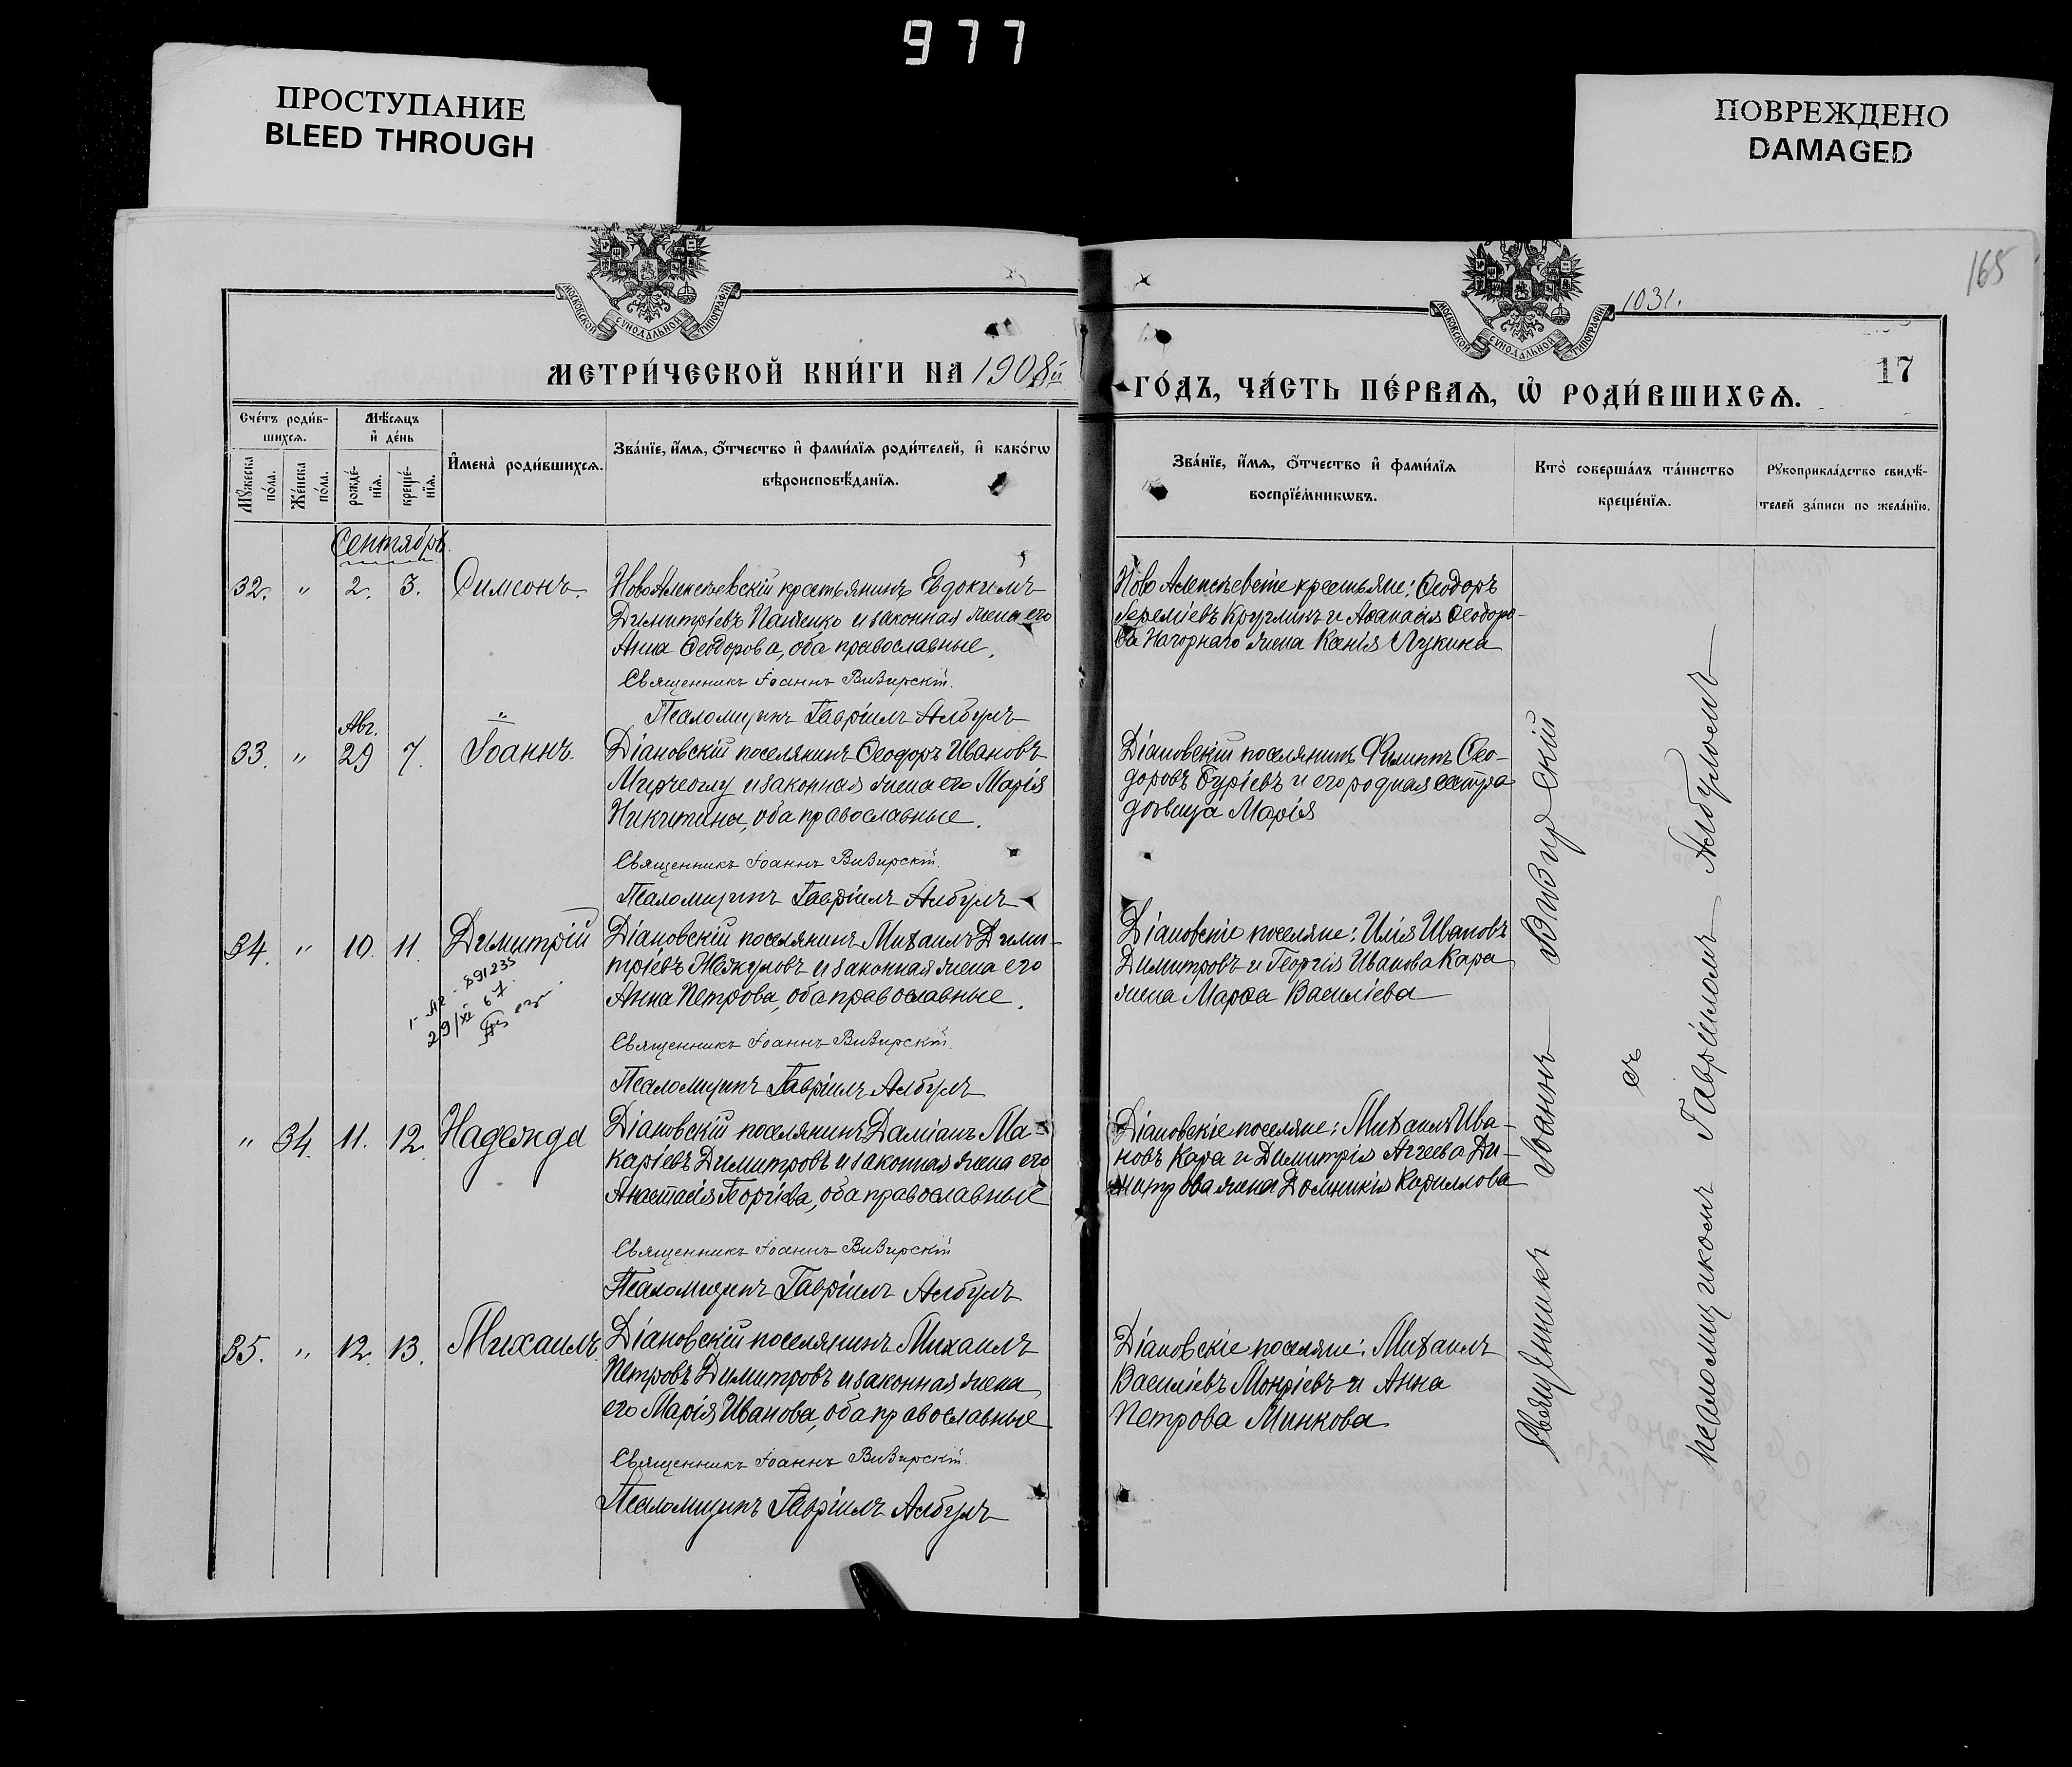 977
ПРОСТУПАНИЕ
BLEED THROUGH
ПОВРЕЖДЕНО
DAMAGED
165
МОСКОВСКОЙ СѴНОДАЛЬНОЙ ТИПОГРАФІИ
МОСКОВСКОЙ СѴНОДАЛЬНОЙ ТИПОГРАФІИ
1031.
17
МЕТРИ́ЧЕСКОЙ КНИ́ГИ НА 1908й
ГО́ДЪ, ЧА́СТЬ ПЕ́РВАѦ, Ѡ҆ РОДИ́ВШИХСѦ.
Сче́тъ роди́в-
шихсѧ.
Мꙋ́жеска по́ла.
Же́нска по́ла.
Мѣ́сѧцъ
и҆ де́нь
рожде́-
нїѧ.
креще́-
нїѧ.
И҆мена̀ роди́вшихсѧ.
Зва́нїе, и҆́мѧ, ѻ҆́тчество и҆ фами́лїѧ роди́телей, и҆ како́гѡ
вѣроисповѣ́данїѧ.
Зва́нїе, и҆́мѧ, ѻ҆́тчество и҆ фами́лїѧ
воспрїе́мникѡвъ.
Кто̀ соверша́лъ та́инство
креще́нїѧ.
Рꙋкоприкла́дство свидѣ́-
телей за́писи по жела́нїю.
Сентябрь.
32. " 2. 3. Симеонъ.
НовоАлексѣевскій крестьянинъ Евдокимъ
Димитріевъ и законная жена его
Анна Ѳеодорова, оба православные.
Священникъ Іоаннъ Визирскій.
Псаломщикъ Гавріилъ Албулъ
Ново Алексѣевскіе крестьяне: Ѳеодоръ
Іереміевъ Кругликъ и Аѳанасія Ѳеодоро-
ва Нагорнаго жена Ксенія Лукина
Авг.
33. " 29 7. Іоаннъ.
Діановскій поселянинъ Ѳеодоръ Ивановъ
и законная жена его Марія
Никитина, оба православные.
Священникъ Іоаннъ Визирскій.
Псаломщикъ Гавріилъ Албулъ
Діановскій поселянинъ Филиппъ Ѳео-
доровъ Буріевъ и его родная сестра
дѣвица Марія
"
34. " 10. 11. Димитрій
29/XI 67
Діановскій поселянинъ Михаилъ Дими-
тріевъ и законная жена его
Анна Петрова, оба православные.
Священникъ Іоаннъ Визирскій.
Псаломщикъ Гавріилъ Албулъ
Діановскіе поселяне: Илія Ивановъ
Димитровъ и Георгія Иванова Кара
жена Марѳа Василіева
" 34. 11. 12. Надежда
Діановскій поселянинъ Даміанъ Ма-
каріевъ Димитровъ и законная жена его
Анастасія Георгіева, оба православные
Священникъ Іоаннъ Визирскій
Псаломщикъ Гавріилъ Албулъ
Діановскіе поселяне: Михаилъ Ива-
новъ Кара и Димитрія Агеева Ди-
митрова жена Домникія Кириллова
35. " 12. 13. Михаилъ
Діановскій поселянинъ Михаилъ
Петровъ Димитровъ и законная жена
его Марія Иванова, оба православные
Священникъ Іоаннъ Визирскій.
Псаломщикъ Гавріилъ Албулъ
Діановскіе поселяне: Михаилъ
Василіевъ и Анна
Петрова Минкова
Священникъ Іоаннъ Визирскій
съ
псаломщикомъ Гавріиломъ Албуломъ